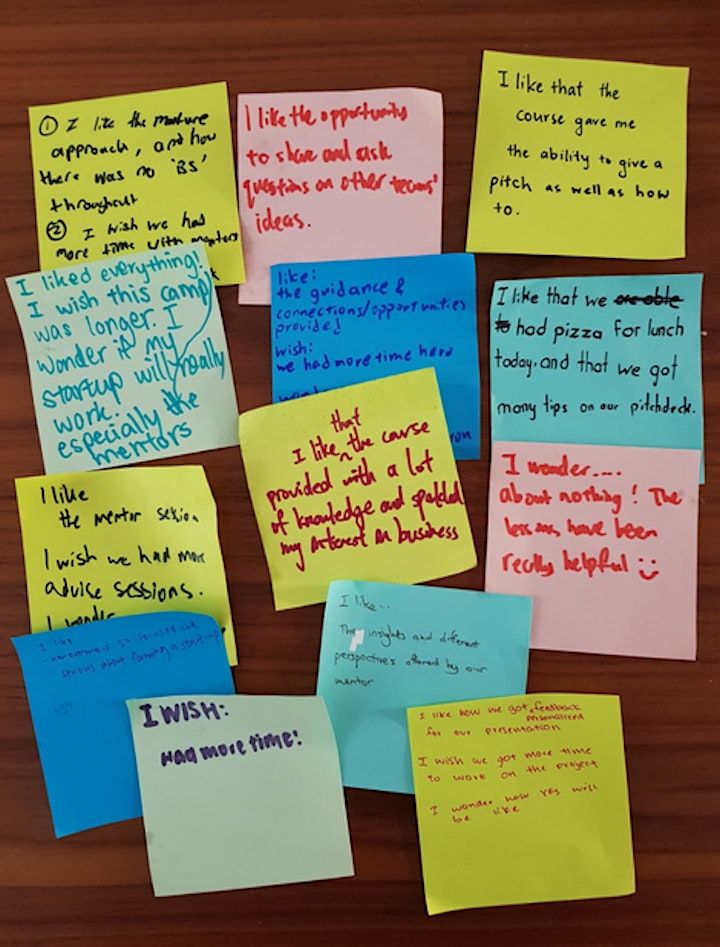 ① I like the mature
approach, and how
there was no 'BS'
throughout
② I wish we had
more time with mentors
I like the opportunity
to share and ask
questions on other teams'
ideas.
I like that the
course gave me
the ability to give a
pitch as well as how
to.
I liked everything!
I wish this camp
was longer. I
wonder if my
startup will really
work.
especially the
mentors
like:
the guidance &
connections/opportunities
provided
wish:
we had more time here
I like that we are able
to had pizza for lunch
today, and that we got
many tips on our pitchdeck.
that
I like the course
provided with a lot
of knowledge and sparked
my interest in business
I wonder....
about nothing! The
lessons have been
really helpful
I like
the mentor session
I wish we had more
advice sessions.
I wonder
I like
how everyone is so focused and
serious about forming a start-up
I like...
The insights and different
perspectives offered by our
mentor
I WISH:
Had more time!
I like how we got personalized feedback
for our presentation
I wish we got more time
to work on the project
I wonder how YES will
be like